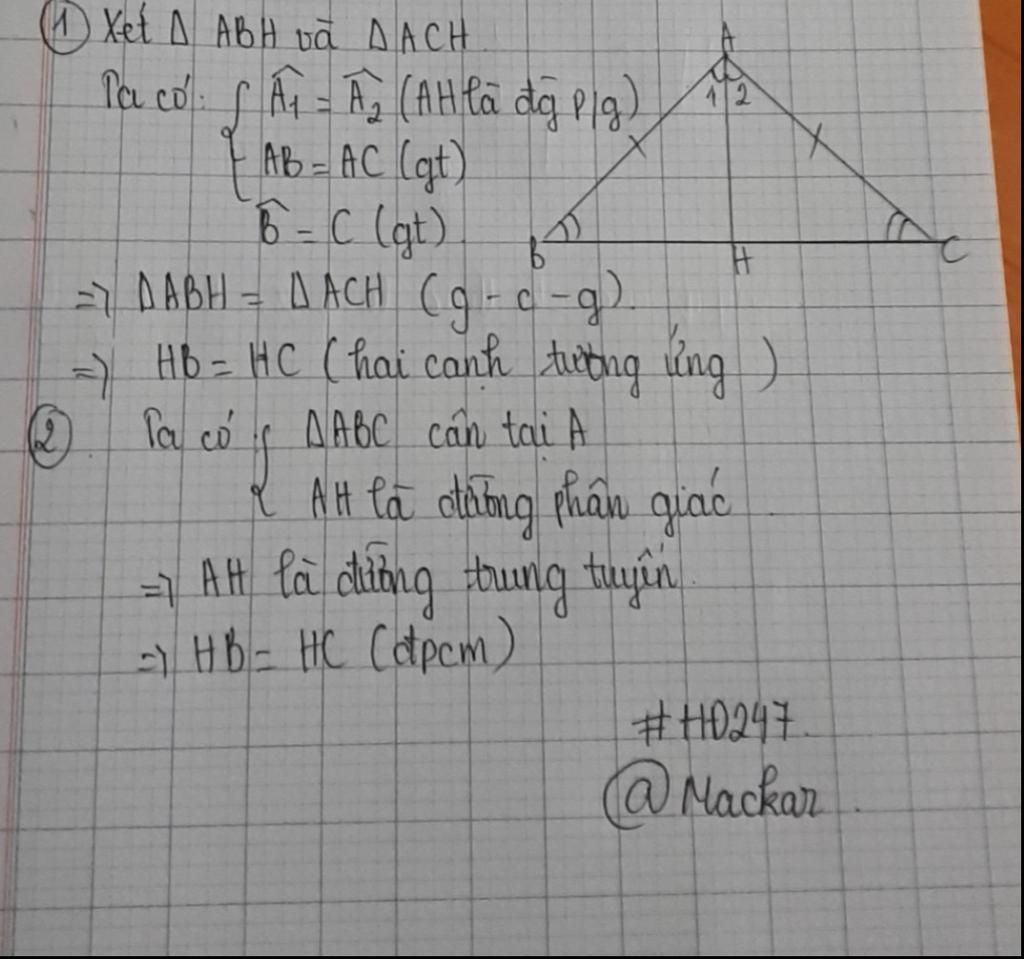 ① Xét Δ ABH và Δ ACH
Ta có: { Â1 = Â2 (AH là đg p/g)
AB = AC (gt)
B̂ = C (gt)
=> ΔABH = ΔACH (g-c-g)
=> HB = HC (hai cạnh tương ứng)
② Ta có { ΔABC cân tại A
AH là đường phân giác
=> AH là đường trung tuyến
=> HB = HC (đpcm)
#HD247
@Mackar
A
1 2
B
H
C